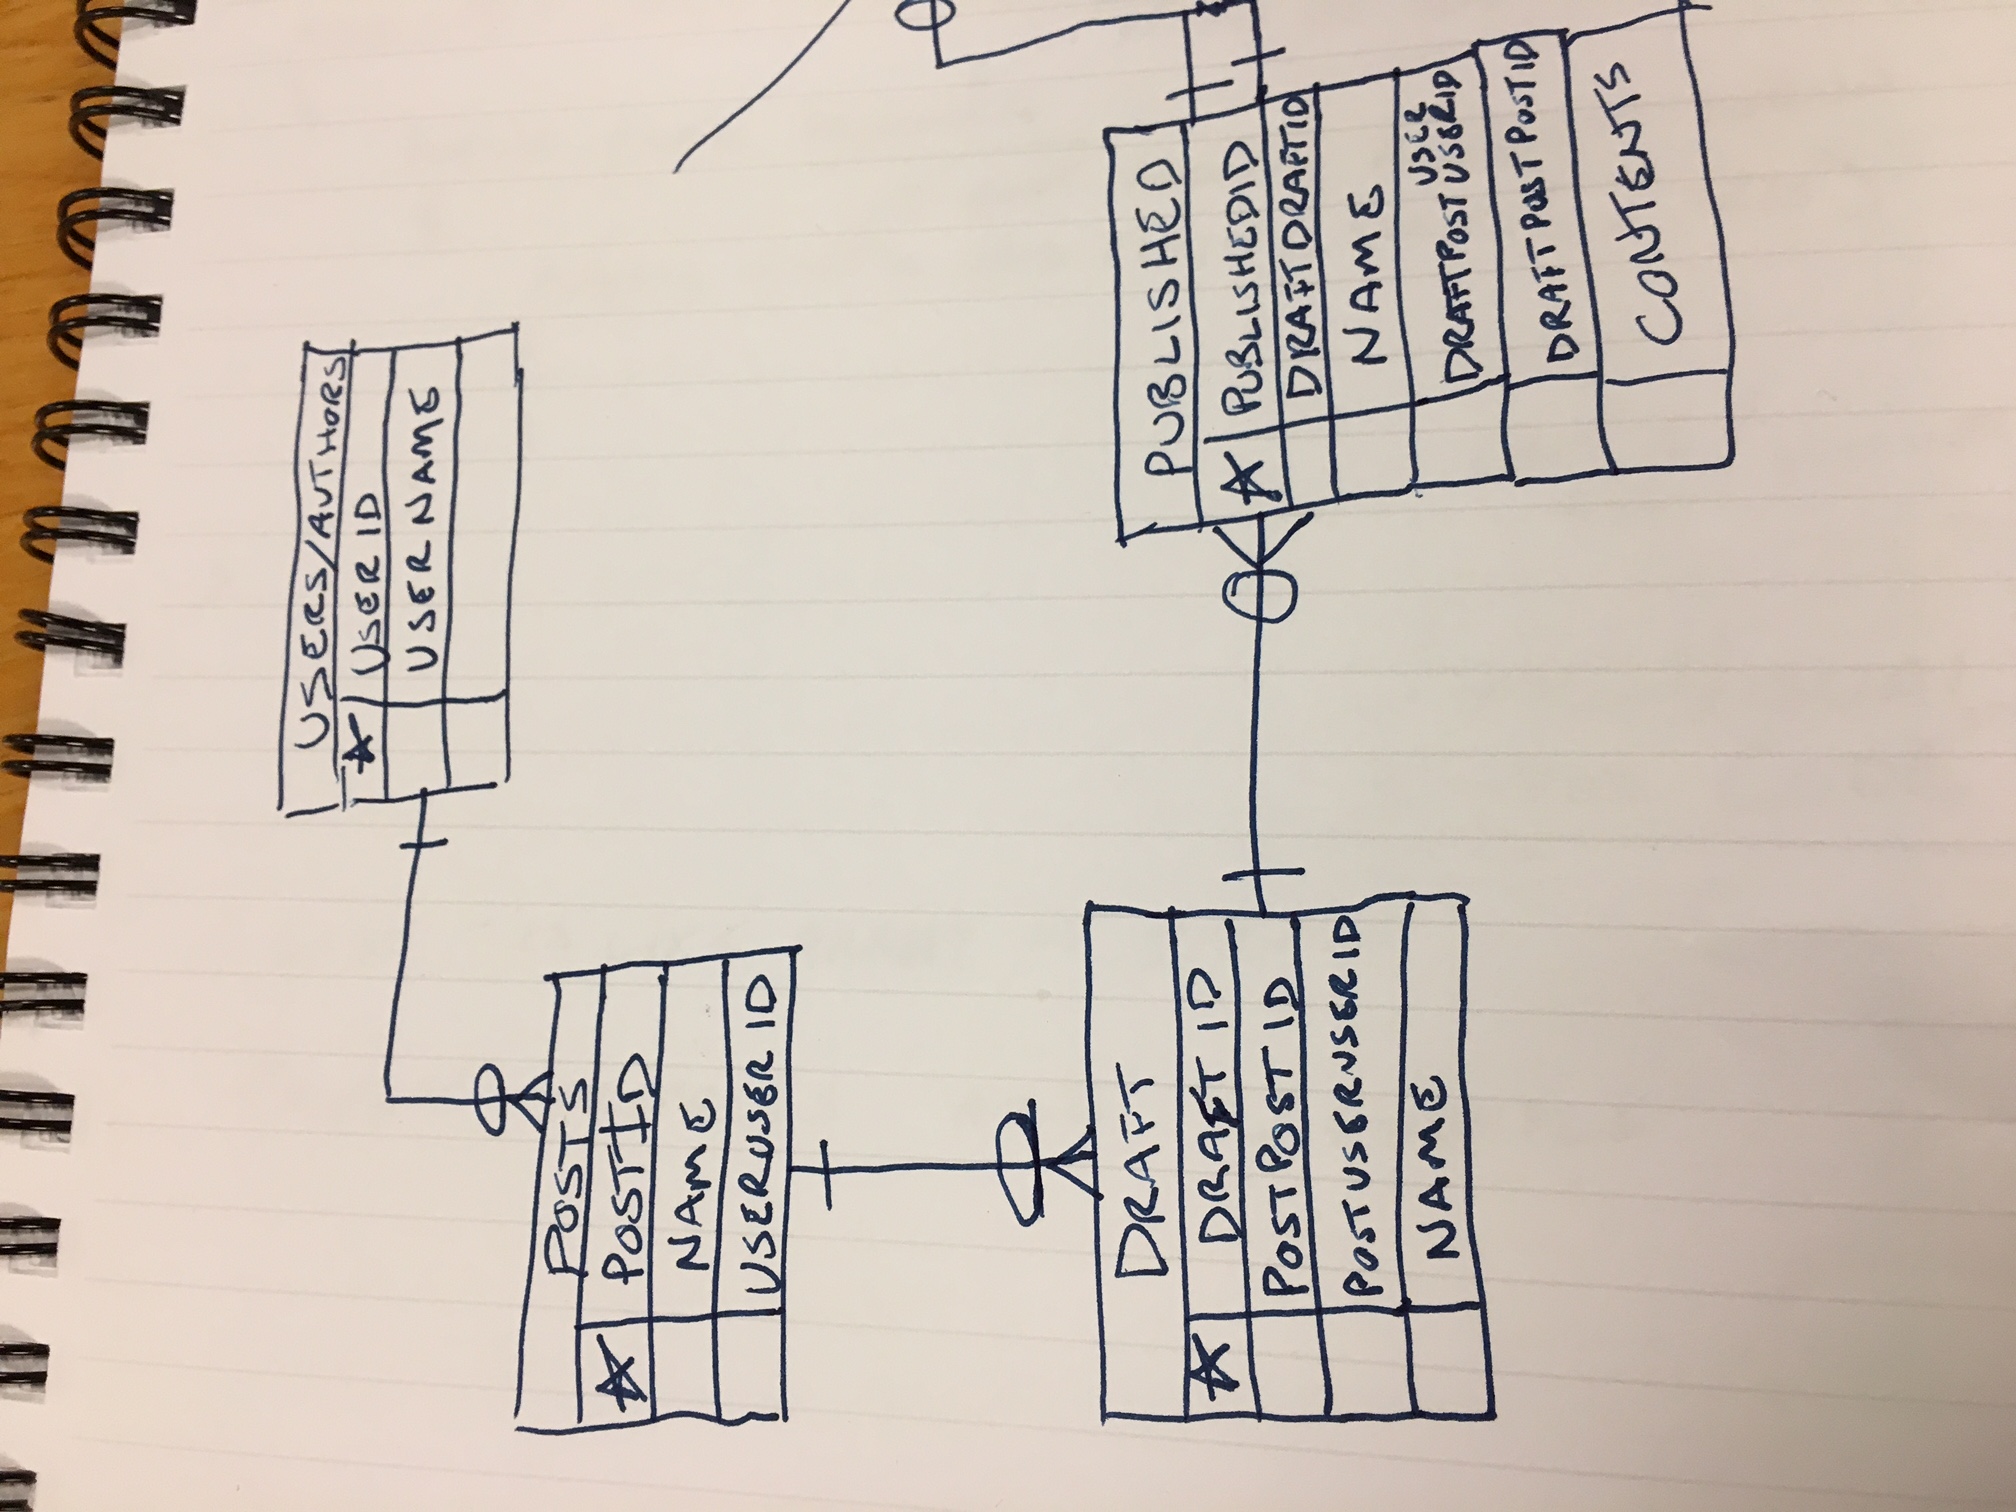 USERS/AUTHORS
USER ID
USER NAME
POSTS
POSTID
NAME
USERUSER ID
DRAFT
DRAFT ID
POSTPOST ID
POSTUSERUSERID
NAME
PUBLISHED
PUBLISHEDID
DRAFTDRAFTID
NAME
DRAFTPOSTUSER
USERID
DRAFTPOSTPOSTID
CONTENTS